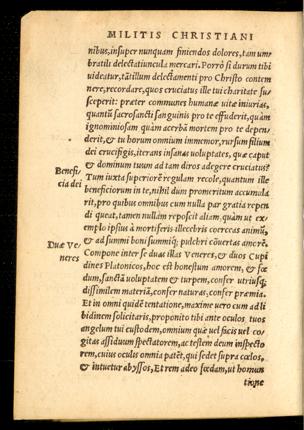 MILITIS CHRISTIANI
nibus, insuper nunquam finiendos dolores, tam um⸗
bratili delectatiuncula mercari. Porrò si durum tibi
uideatur, tātillum delectamenti pro Christo contem
nere, recordare, quos cruciatus ille tui charitate su⸗
sceperit: præter communes humanæ uitæ iniurias,
quantū sacrosancti sanguinis pro te effuderit, quàm
ignominiosam quàm acerbā mortem pro te depen⸗
derit, & tu horum omnium immemor, rursum filium
dei crucifigis, iterans insanas uoluptates, quæ caput
& dominum tuum ad tam diros adegere cruciatus?
Benefi⸗
cia dei
Tum iuxta superiorē regulam recole, quantum ille
beneficiorum in te, nihil dum promeritum accumula
rit, pro quibus omnibus cum nulla par gratia repen
di queat, tamen nullàm reposcit aliam, quàm ut ex⸗
emplo ipsius à mortiferis illecebris coerceas animū,
& ad summi boni summiq; pulchri cōuertas amorē.
Duæ Ve⸗
neres
Compone inter se duas illas Veneres, & duos Cupi
dines Platonicos, hoc est honestum amorem, & fœ
dum, sanctā uoluptatem & turpem, confer utriusq;
dissimilem materiā, confer naturas, confer præmia.
Et in omni quidē tentatione, maxime uero cum ad li
bidinem solicitaris, proponito tibi ante oculos tuos
angelum tui custodem, omnium quæ uel facis uel co
gitas assiduum spectatorem, ac testem deum inspecto
rem, cuius oculis omnia patēt, qui sedet supra cœlos,
& intuetur abyssos, Et rem adeo fœdam, ut homun
tione